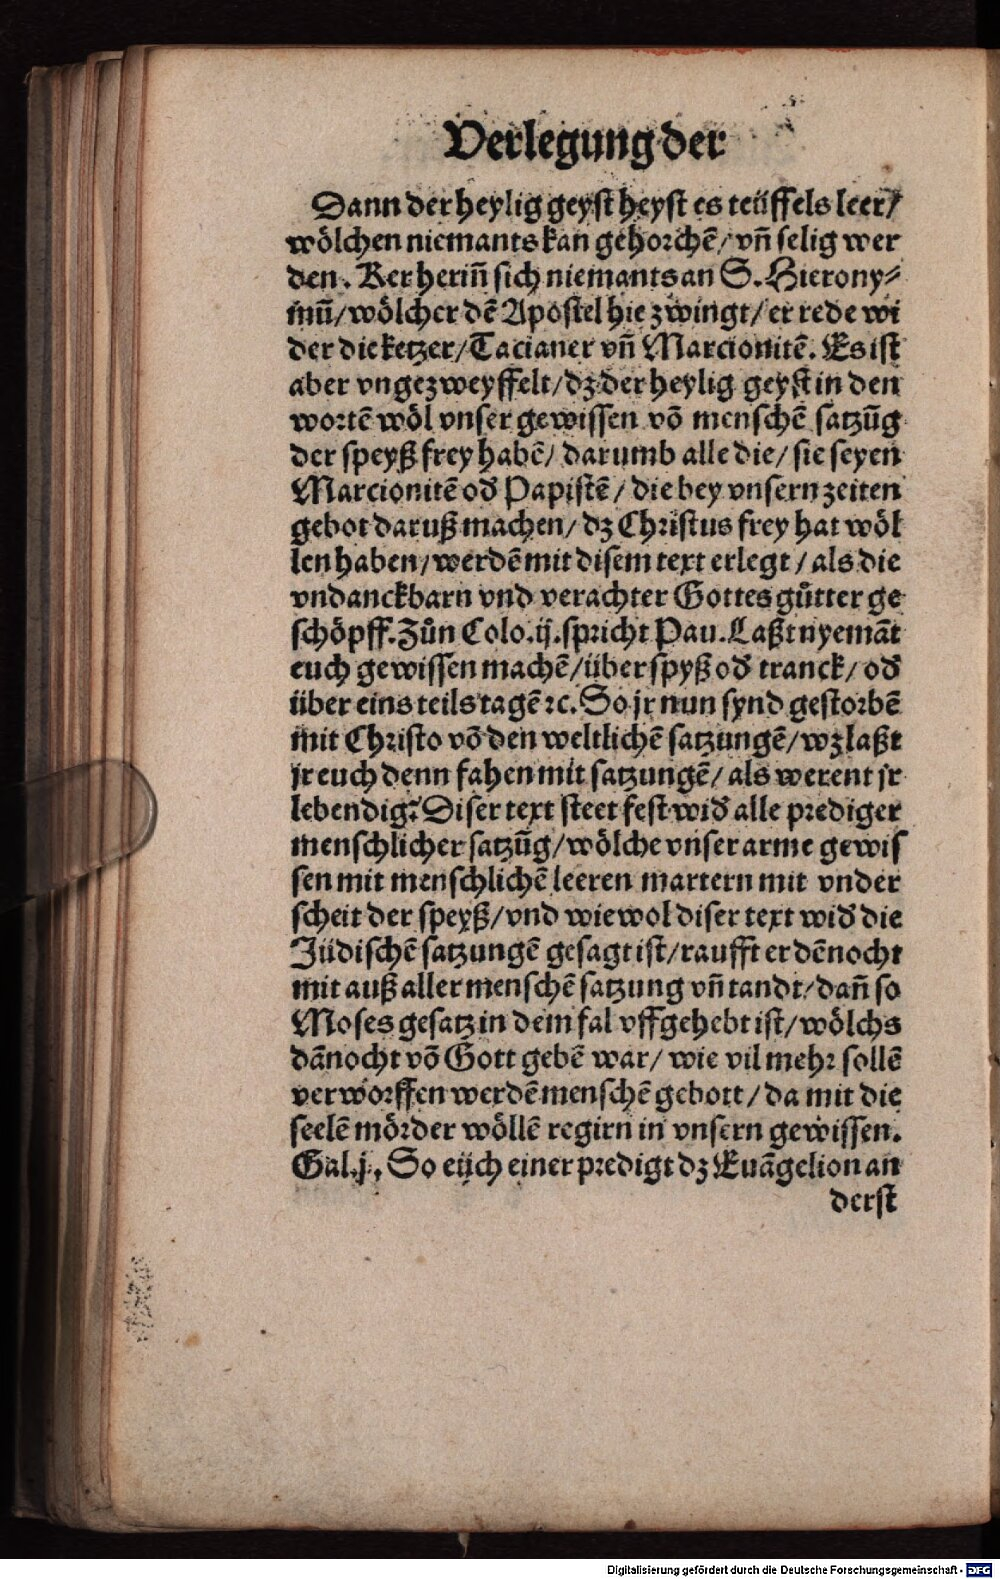 Verlegung der
Dann der heylig geyst heyst es teüffels leer/
wölchen niemants kan gehorchē/ vñ selig wer
den. Ker heriñ sich niemants an S. Hierony⸗
mū/ wölcher dē Apostel hie zwingt/ er rede wi
der die ketzer/ Tacianer vñ Marcionitē. Es ist
aber vngezweyffelt/ dz der heylig geyst in den
wortē wöl vnser gewissen vō menschē satzūg
der speyß frey habē/ darumb alle die/ sie seyen
Marcionitē od̄ Papistē/ die bey vnsern zeiten
gebot daruß machen/ dz Christus frey hat wöl
len haben/ werdē mit disem text erlegt/ als die
vndanckbarn vnd verachter Gottes gůtter ge
schöpff. Zůn Colo. ij. spricht Pau. Laßt nyemāt
euch gewissen machē/ über spyß od̄ tranck/ od̄
über eins teils tagē ꝛc. So jr nun synd gestorbē
mit Christo vō den weltlichē satzungē/ wz laßt
jr euch denn fahen mit satzungē/ als werent jr
lebendig? Diser text steet fest wid̄ alle prediger
menschlicher satzūg/ wölche vnser arme gewis
sen mit menschlichē leeren martern mit vnder
scheit der speyß/ vnd wiewol diser text wid̄ die
Jüdischē satzungē gesagt ist/ raufft er dēnocht
mit auß aller menschē satzung vñ tandt/ dañ so
Moses gesatz in dem fal vffgehebt ist/ wölchs
dānocht vō Gott gebē war/ wie vil mehr sollē
verworffen werdē menschē gebott/ da mit die
seelē mörder wöllē regirn in vnsern gewissen.
Gal. j. So eüch einer predigt dz Euāgelion an
derst
Digitalisierung gefördert durch die Deutsche Forschungsgemeinschaft - DFG